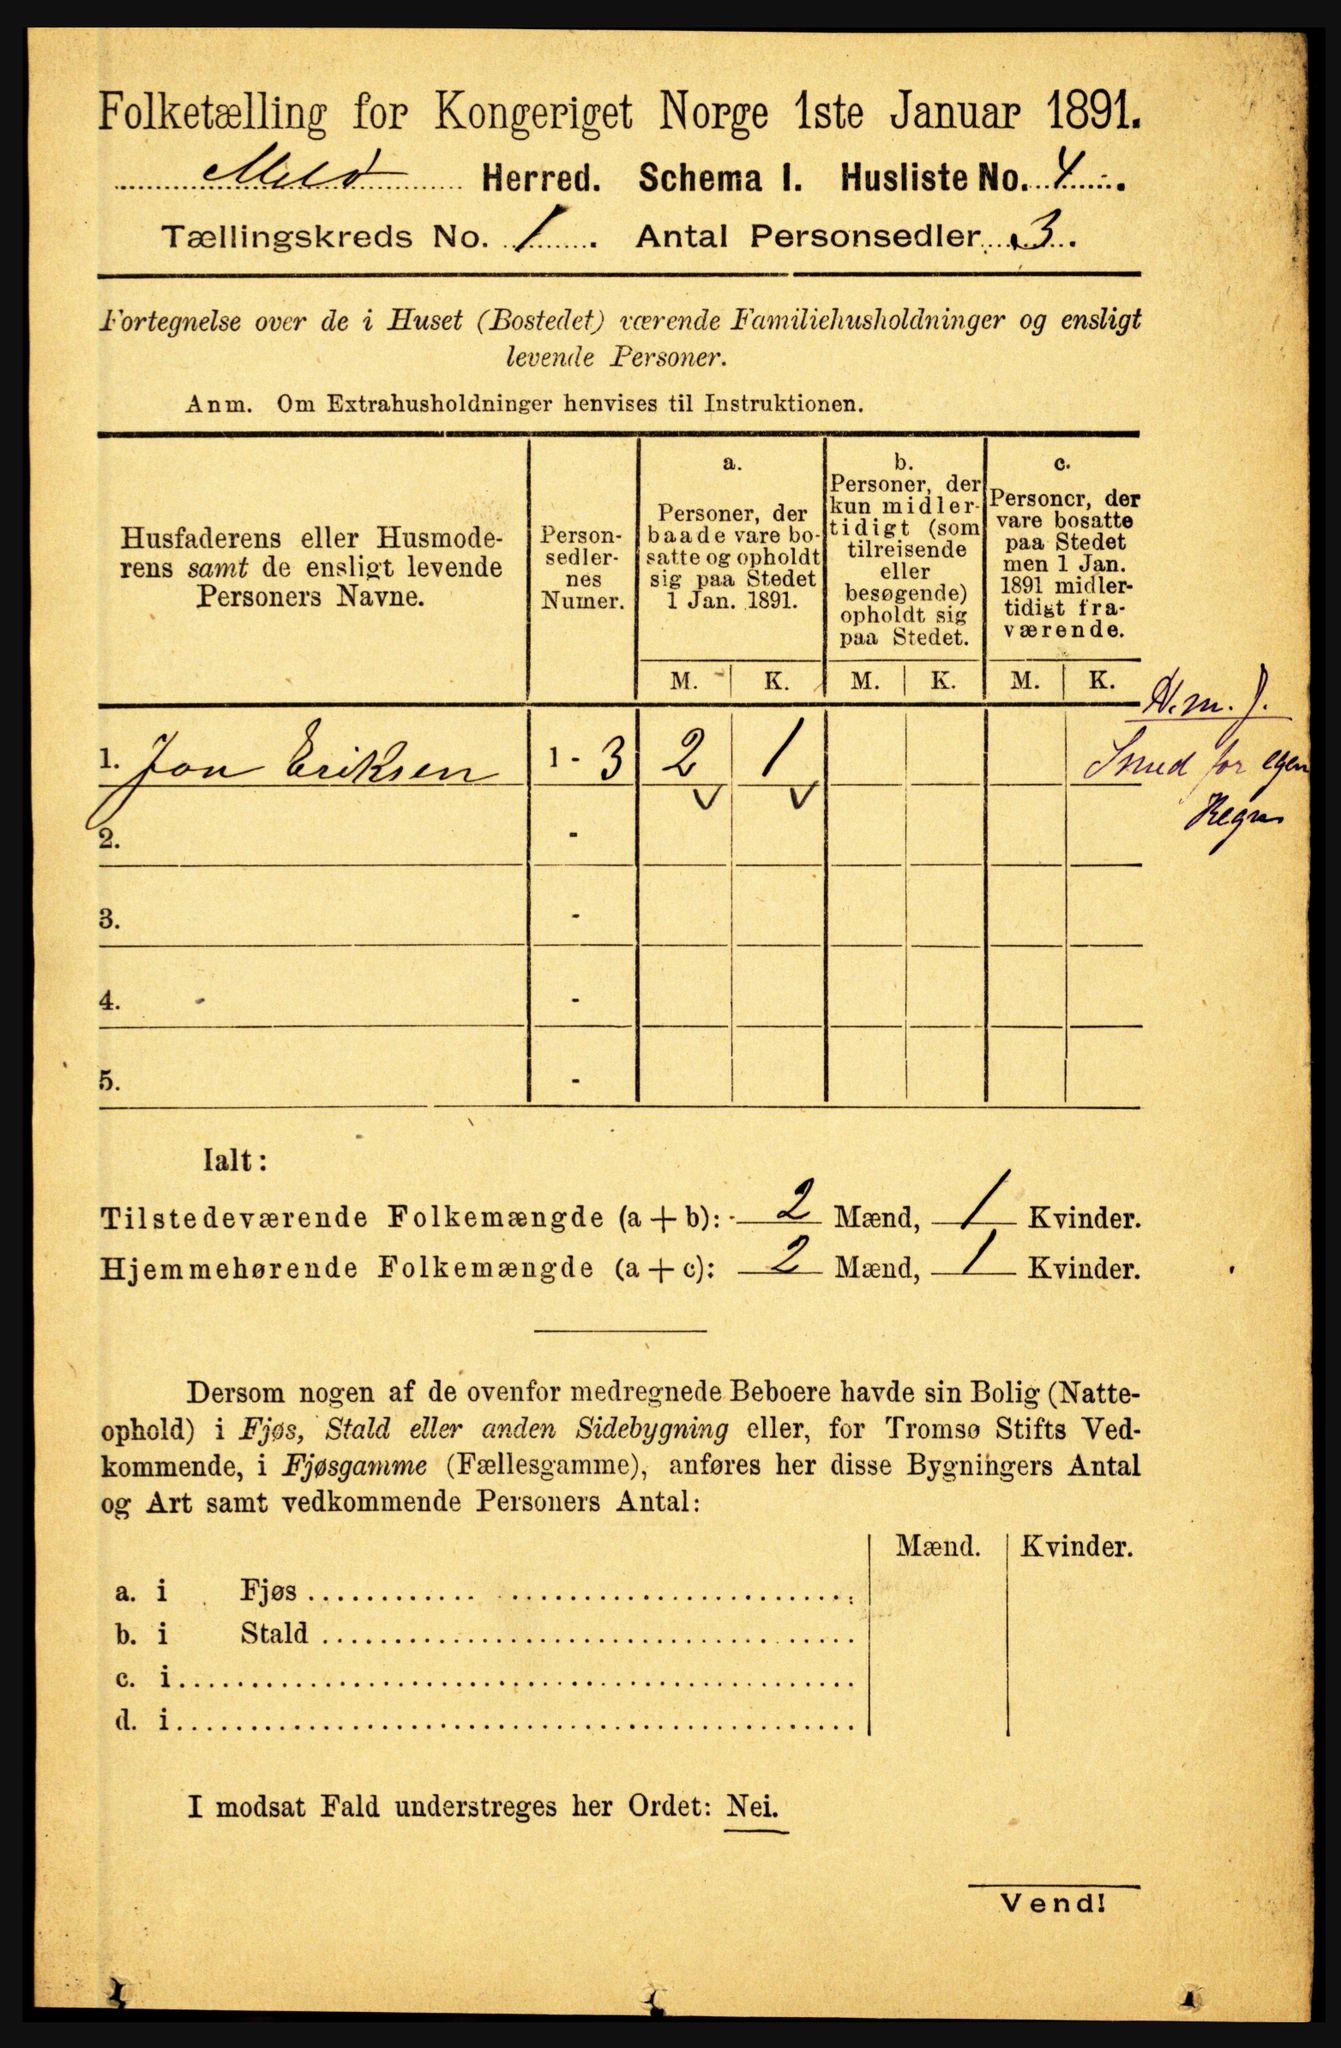 Folketælling for Kongeriget Norge 1ste Januar 1891.
Meløy Herred. Schema I. Husliste No. 4.
Tællingskreds No. 1. Antal Personsedler 3.
Fortegnelse over de i Huset (Bostedet) værende Familiehusholdninger og ensligt
levende Personer.
Anm. Om Extrahusholdninger henvises til Instruktionen.
Husfaderens eller Husmode-
rens samt de ensligt levende
Personers Navne.
Person-
sedler-
nes
Numer.
a.
Personer, der
baade vare bo-
satte og opholdt
sig paa Stedet
1 Jan. 1891.
b.
Personer, der
kun midler-
tidigt (som
tilreisende
eller
besøgende)
opholdt sig
paa Stedet.
c.
Personer, der
vare bosatte
paa Stedet
men 1 Jan.
1891 midler-
tidigt fra-
værende.
M. K. M. K. M. K.
1. Jon Eriksen 1 - 3 2 1
Smed for egen
Regn
2. -
3. -
4. -
5. -
Ialt:
Tilstedeværende Folkemængde (a + b): 2 Mænd, 1 Kvinder.
Hjemmehørende Folkemængde (a + c): 2 Mænd, 1 Kvinder.
Dersom nogen af de ovenfor medregnede Beboere havde sin Bolig (Natte-
ophold) i Fjøs, Stald eller anden Sidebygning eller, for Tromsø Stifts Ved-
kommende, i Fjøsgamme (Fællesgamme), anføres her disse Bygningers Antal
og Art samt vedkommende Personers Antal:
Mænd. Kvinder.
a. i Fjøs
b. i Stald
c. i
d. i
I modsat Fald understreges her Ordet: Nei.
Vend!